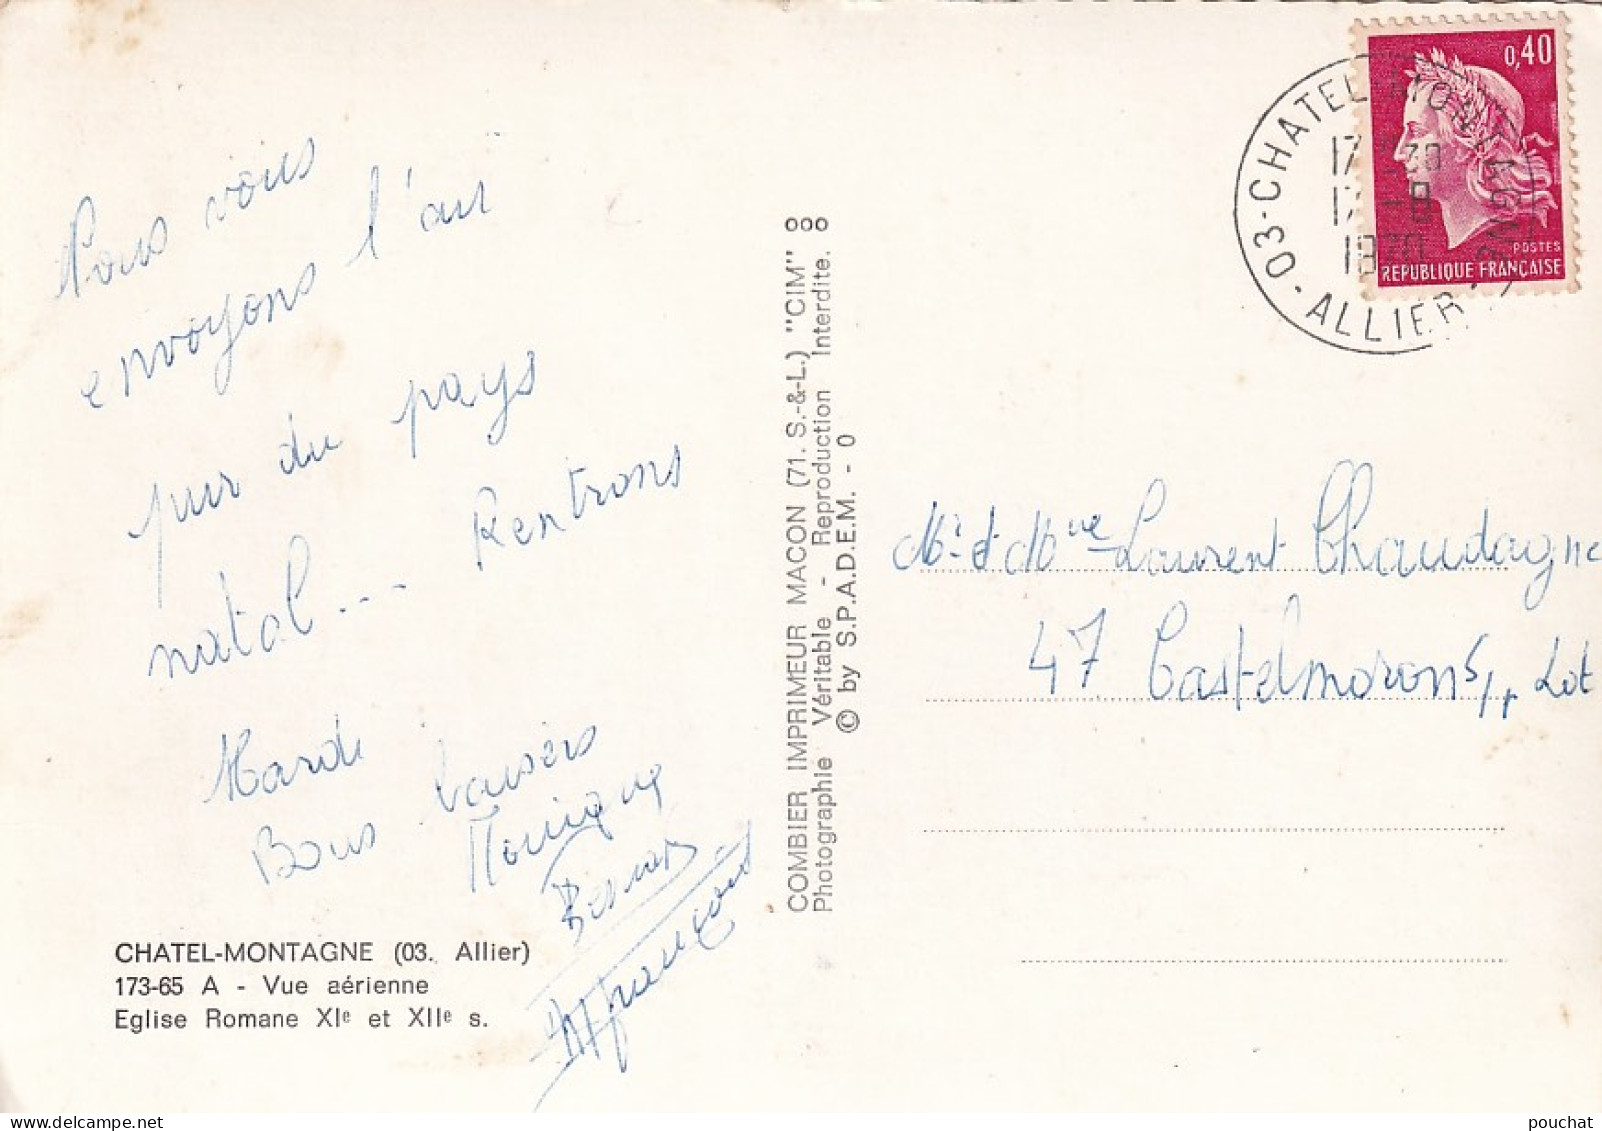 Nous vous
envoyons l'air
pur du pays
natal --- Rentrons
Mardi
Bons baisers
Monique
Bernard
François
CHATEL-MONTAGNE (03. Allier)
173-65 A - Vue aérienne
Eglise Romane XIe et XIIe s.
COMBIER IMPRIMEUR MACON (71. S.-&-L.) "CIM"
Photographie Véritable - Reproduction Interdite.
© by S.P.A.D.E.M. - 0
0,40
POSTES
REPUBLIQUE FRANÇAISE
03-CHATEL-MONTAGNE
17 30
17 -8
1970
ALLIER
Mr et Mme Laurent Chaudagne
47 Castelmoron s/, Lot
pouchat